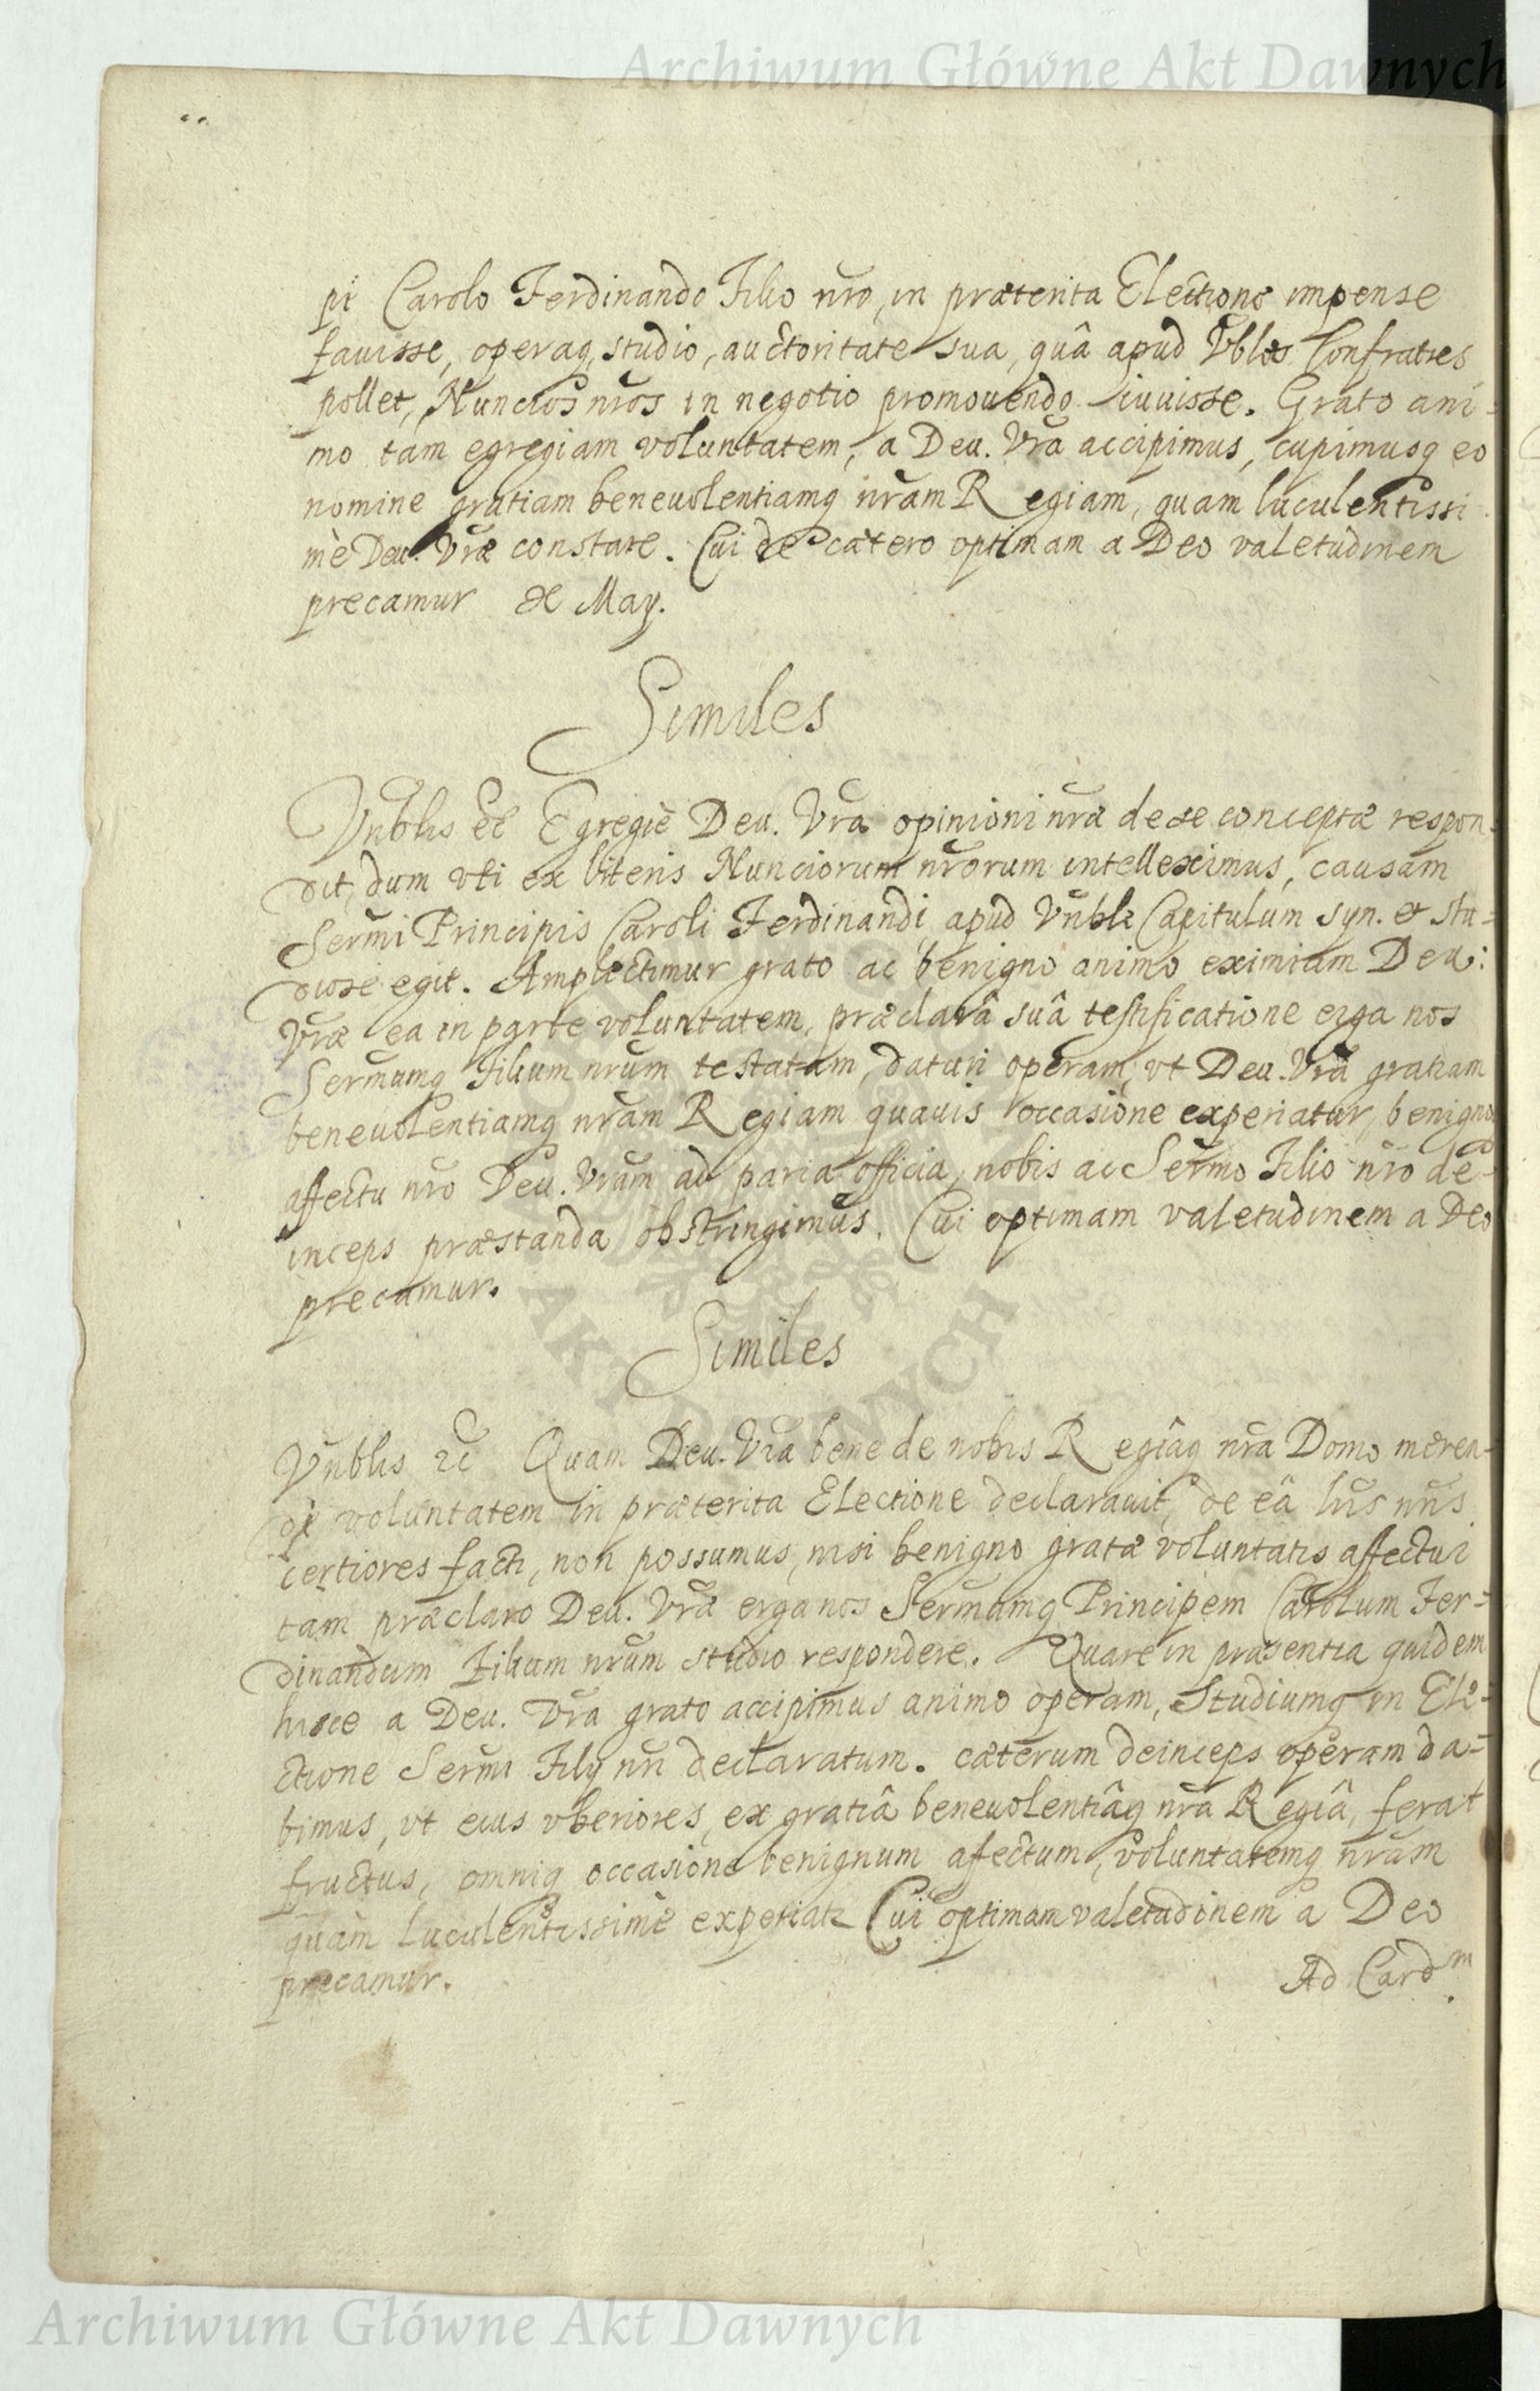 Archiwum Główne Akt Dawnych
pi Carolo Ferdinando Filio nro, in præterita Electione impense
favisse, operaq, studio, auctoritate sua, quâ apud Vbles Confratres
pollet, Nuncios nros in negotio promouendo iuuisse. Grato ani-
mo tam egregiam voluntatem, a Deu. Vra accipimus, cupimusq eo
nomine gratiam beneuolentiamq nram Regiam, quam luculentissi
mè Deu. Vræ constare. Cui de cætero optimam a Deo valetudinem
precamur May.
Similes
Vnblis et Egregiè Deu. Vra opinioni nræ de se conceptæ respon-
dit, dum vti ex literis Nunciorum nrorum intelleximus, causam
Sermi Principis Caroli Ferdinandi apud Vnble Capitulum syn. et stu-
diose egit. Amplectimur grato ac benigno animo eximiam Deu:
Vræ ea in parte voluntatem, præclarâ suâ testificatione erga nos
Sermumq Filium nrum testatam, daturi operam, vt Deu. Vra gratiam
beneuolentiamq nram Regiam quauis occasione experiatur, benigno
affectu nro Deu. Vram ad paria officia, nobis ac Sermo Filio nro de-
inceps præstanda obstringimus. Cui optimam valetudinem a Deo
precamur.
Similes
Vnblis etc Quam Deu. Vra bene de nobis Regiâq nra Domo meren-
di voluntatem in præterita Electione declarauit, de eâ lris nris
certiores facti, non possumus, nisi benigno gratæ voluntatis affectui
tam præclaro Deu. Vræ erga nos Sermumq Principem Carolum Fer-
dinandum Filium nrum studio respondere. Quare in præsentia quidem
hisce a Deu. Vra grato accipimus animo operam, Studiumq in Ele-
ctione Sermi Filij nri declaratum. cæterum deinceps operam da-
bimus, vt eius vberiores, ex gratiâ beneuolentiâq nra Regiâ, ferat
fructus, omniq occasione benignum afectum, voluntatemq nram
quàm luculentissimè experiatr Cui optimam valetudinem a Deo
precamur.
Ad Cardm.
Archiwum Główne Akt Dawnych